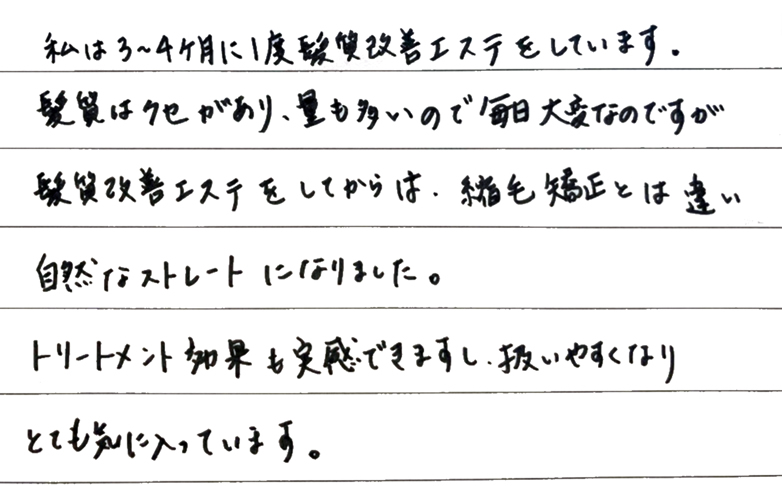 私は3~4ヶ月に1度髪質改善エステをしています。
髪質はクセがあり、量も多いので毎日大変なのですが
髪質改善エステをしてからは、縮毛矯正とは違い
自然なストレートになりました。
トリートメント効果も実感できますし、扱いやすくなり
とても気に入っています。